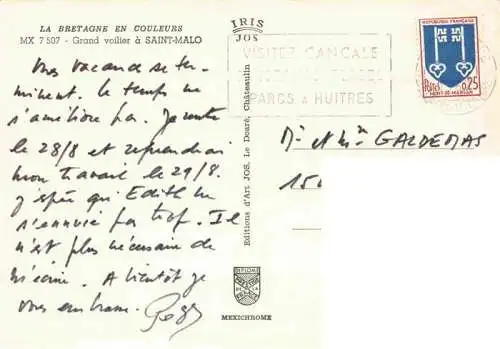 LA BRETAGNE EN COULEURS
MX 7507 - Grand voilier à SAINT-MALO
IRIS
JOS
VISITEZ CANCALE
PARCS A HUITRES
REPUBLIQUE FRANÇAISE
Postes 0,25
MONT-DE-MARSAN
Mos vacances se ter-
minent. Le temps ne
s'améliore pas. Je rentre
le 28/8 et reprendrai
mon travail le 29/8.
J'espère que Edith ne
s'ennuie pas trop. Il
n'est plus nécessaire de
m'écrire. A bientôt je
vous embrasse.
Mr et Mme GALDEMAS
15
Editions d'Art JOS, Le Doaré, Châteaulin
MEXICHROME